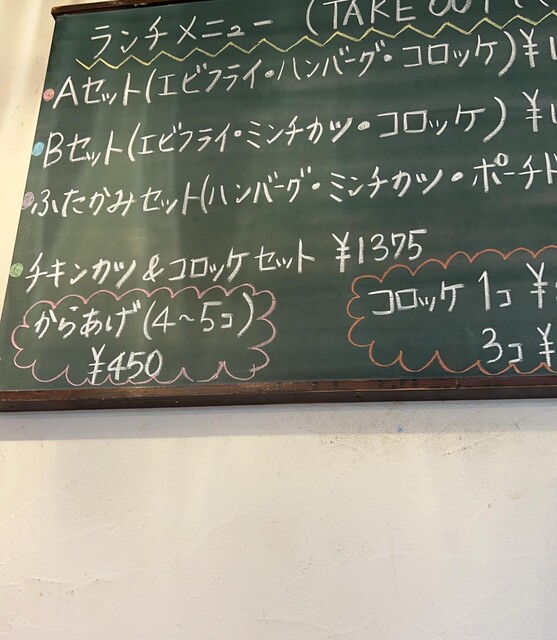 ランチメニュー (TAKE OUT
Aセット(エビフライ・ハンバーグ・コロッケ)¥1
Bセット(エビフライ・ミンチカツ・コロッケ)¥1
ふたかみセット(ハンバーグ・ミンチカツ・ポーチド
チキンカツ&コロッケセット ¥1375
からあげ(4~5コ)
¥450
コロッケ 1コ ¥
3コ ¥